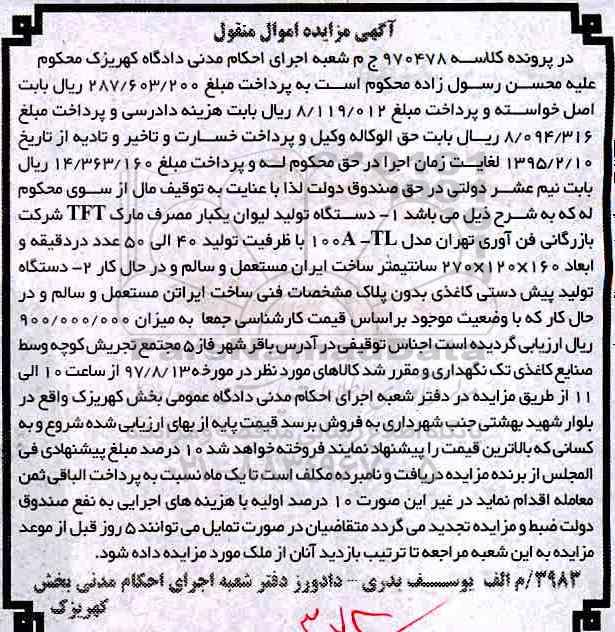 آگهی مزایده اموال منقول
در پرونده کلاسه ۹۷۰۴۷۸ ج م شعبه اجرای احکام مدنی دادگاه کهریزک محکوم
علیه محسن رسول زاده محکوم است به پرداخت مبلغ ۲۸۷/۶۰۳/۲۰۰ ریال بابت
اصل خواسته و پرداخت مبلغ ۸/۱۱۹/۰۱۲ ریال بابت هزینه دادرسی و پرداخت مبلغ
۸/۰۹۴/۳۱۶ ریال بابت حق الوکاله وکیل و پرداخت خسارت و تاخیر و تادیه از تاریخ
۱۳۹۵/۲/۱۰ لغایت زمان اجرا در حق محکوم له و پرداخت مبلغ ۱۴/۳۶۳/۱۶۰ ریال
بابت نیم عشر دولتی در حق صندوق دولت لذا با عنایت به توقیف مال از سوی محکوم
له که به شرح ذیل می باشد ۱- دستگاه تولید لیوان یکبار مصرف مارک TFT شرکت
بازرگانی فن آوری تهران مدل ۱۰۰A -TL با ظرفیت تولید ۴۰ الی ۵۰ عدد دردقیقه و
ابعاد ۱۶۰×۱۲۰×۲۷۰ سانتیمتر ساخت ایران مستعمل و سالم و در حال کار ۲- دستگاه
تولید پیش دستی کاغذی بدون پلاک مشخصات فنی ساخت ایراتن مستعمل و سالم و در
حال کار که با وضعیت موجود براساس قیمت کارشناسی جمعا به میزان ۹۰۰/۰۰۰/۰۰۰
ریال ارزیابی گردیده است اجناس توقیفی در آدرس باقر شهر فاز ۵ مجتمع تجریش کوچه وسط
صنایع کاغذی تک نگهداری و مقرر شد کالاهای مورد نظر در مورخه ۹۷/۸/۱۳ از ساعت ۱۰ الی
۱۱ از طریق مزایده در دفتر شعبه اجرای احکام مدنی دادگاه عمومی بخش کهریزک واقع در
بلوار شهید بهشتی جنب شهرداری به فروش برسد قیمت پایه از بهای ارزیابی شده شروع و به
کسانی که بالاترین قیمت را پیشنهاد نمایند فروخته خواهد شد ۱۰ درصد مبلغ پیشنهادی فی
المجلس از برنده مزایده دریافت و نامبرده مکلف است تا یک ماه نسبت به پرداخت الباقی ثمن
معامله اقدام نماید در غیر این صورت ۱۰ درصد اولیه با هزینه های اجرایی به نفع صندوق
دولت ضبط و مزایده تجدید می گردد متقاضیان در صورت تمایل می توانند ۵ روز قبل از موعد
مزایده به این شعبه مراجعه تا ترتیب بازدید آنان از ملک مورد مزایده داده شود.
۳۹۸۳/م الف یوسف بدری - دادورز دفتر شعبه اجرای احکام مدنی بخش
کهریزک